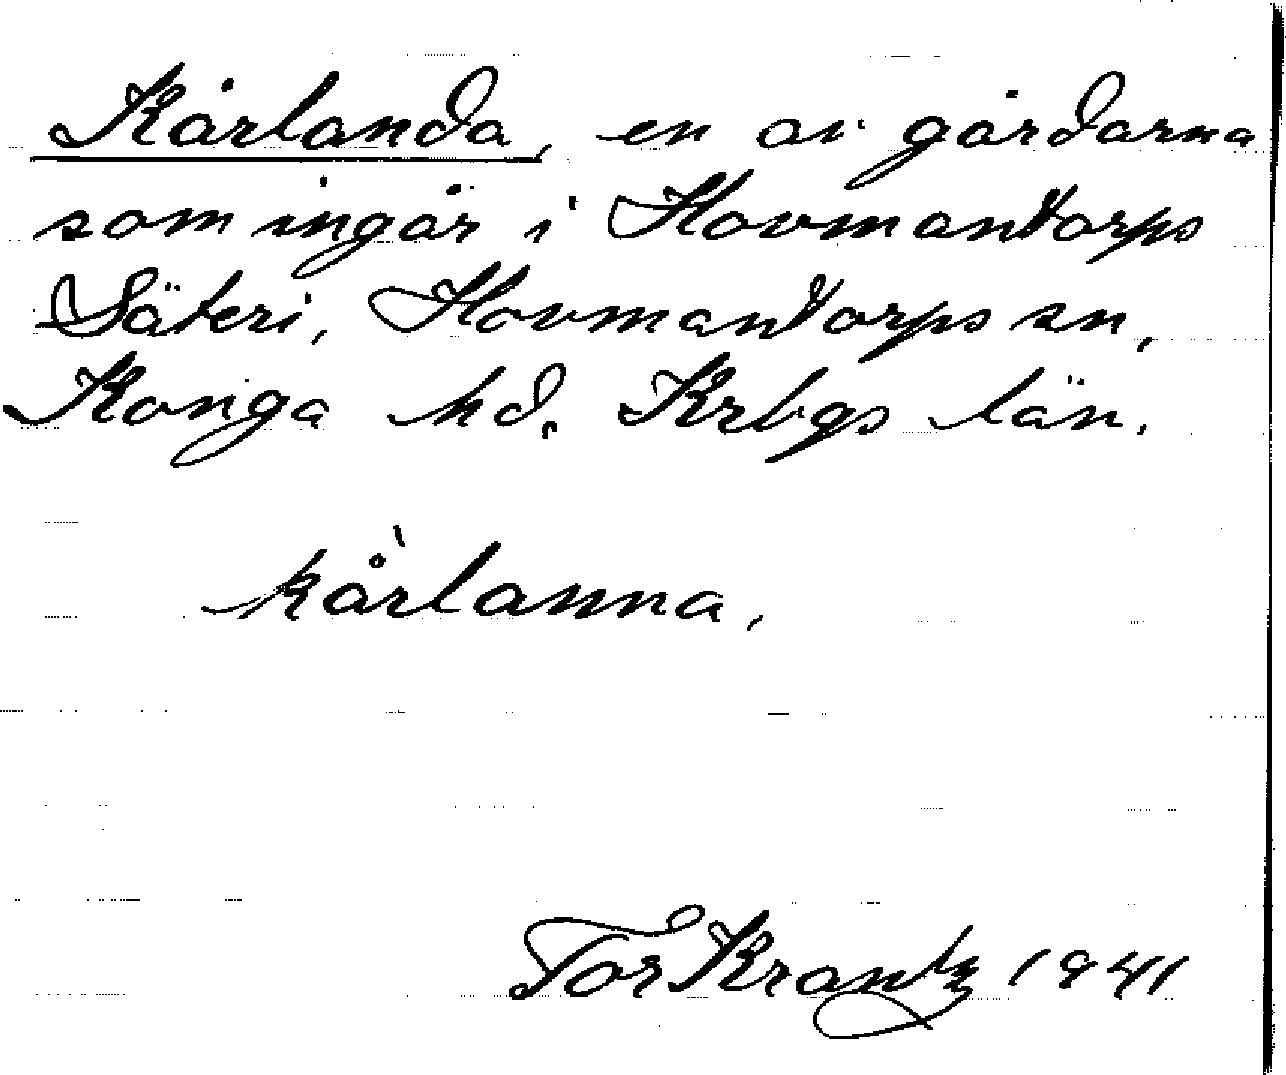 Kårlanda, en av gårdarna
som ingår i Hovmantorps
Säteri, Hovmantorps sn,
Konga hd. Krbgs län.
kårlanna,
Tor Krantz 1941